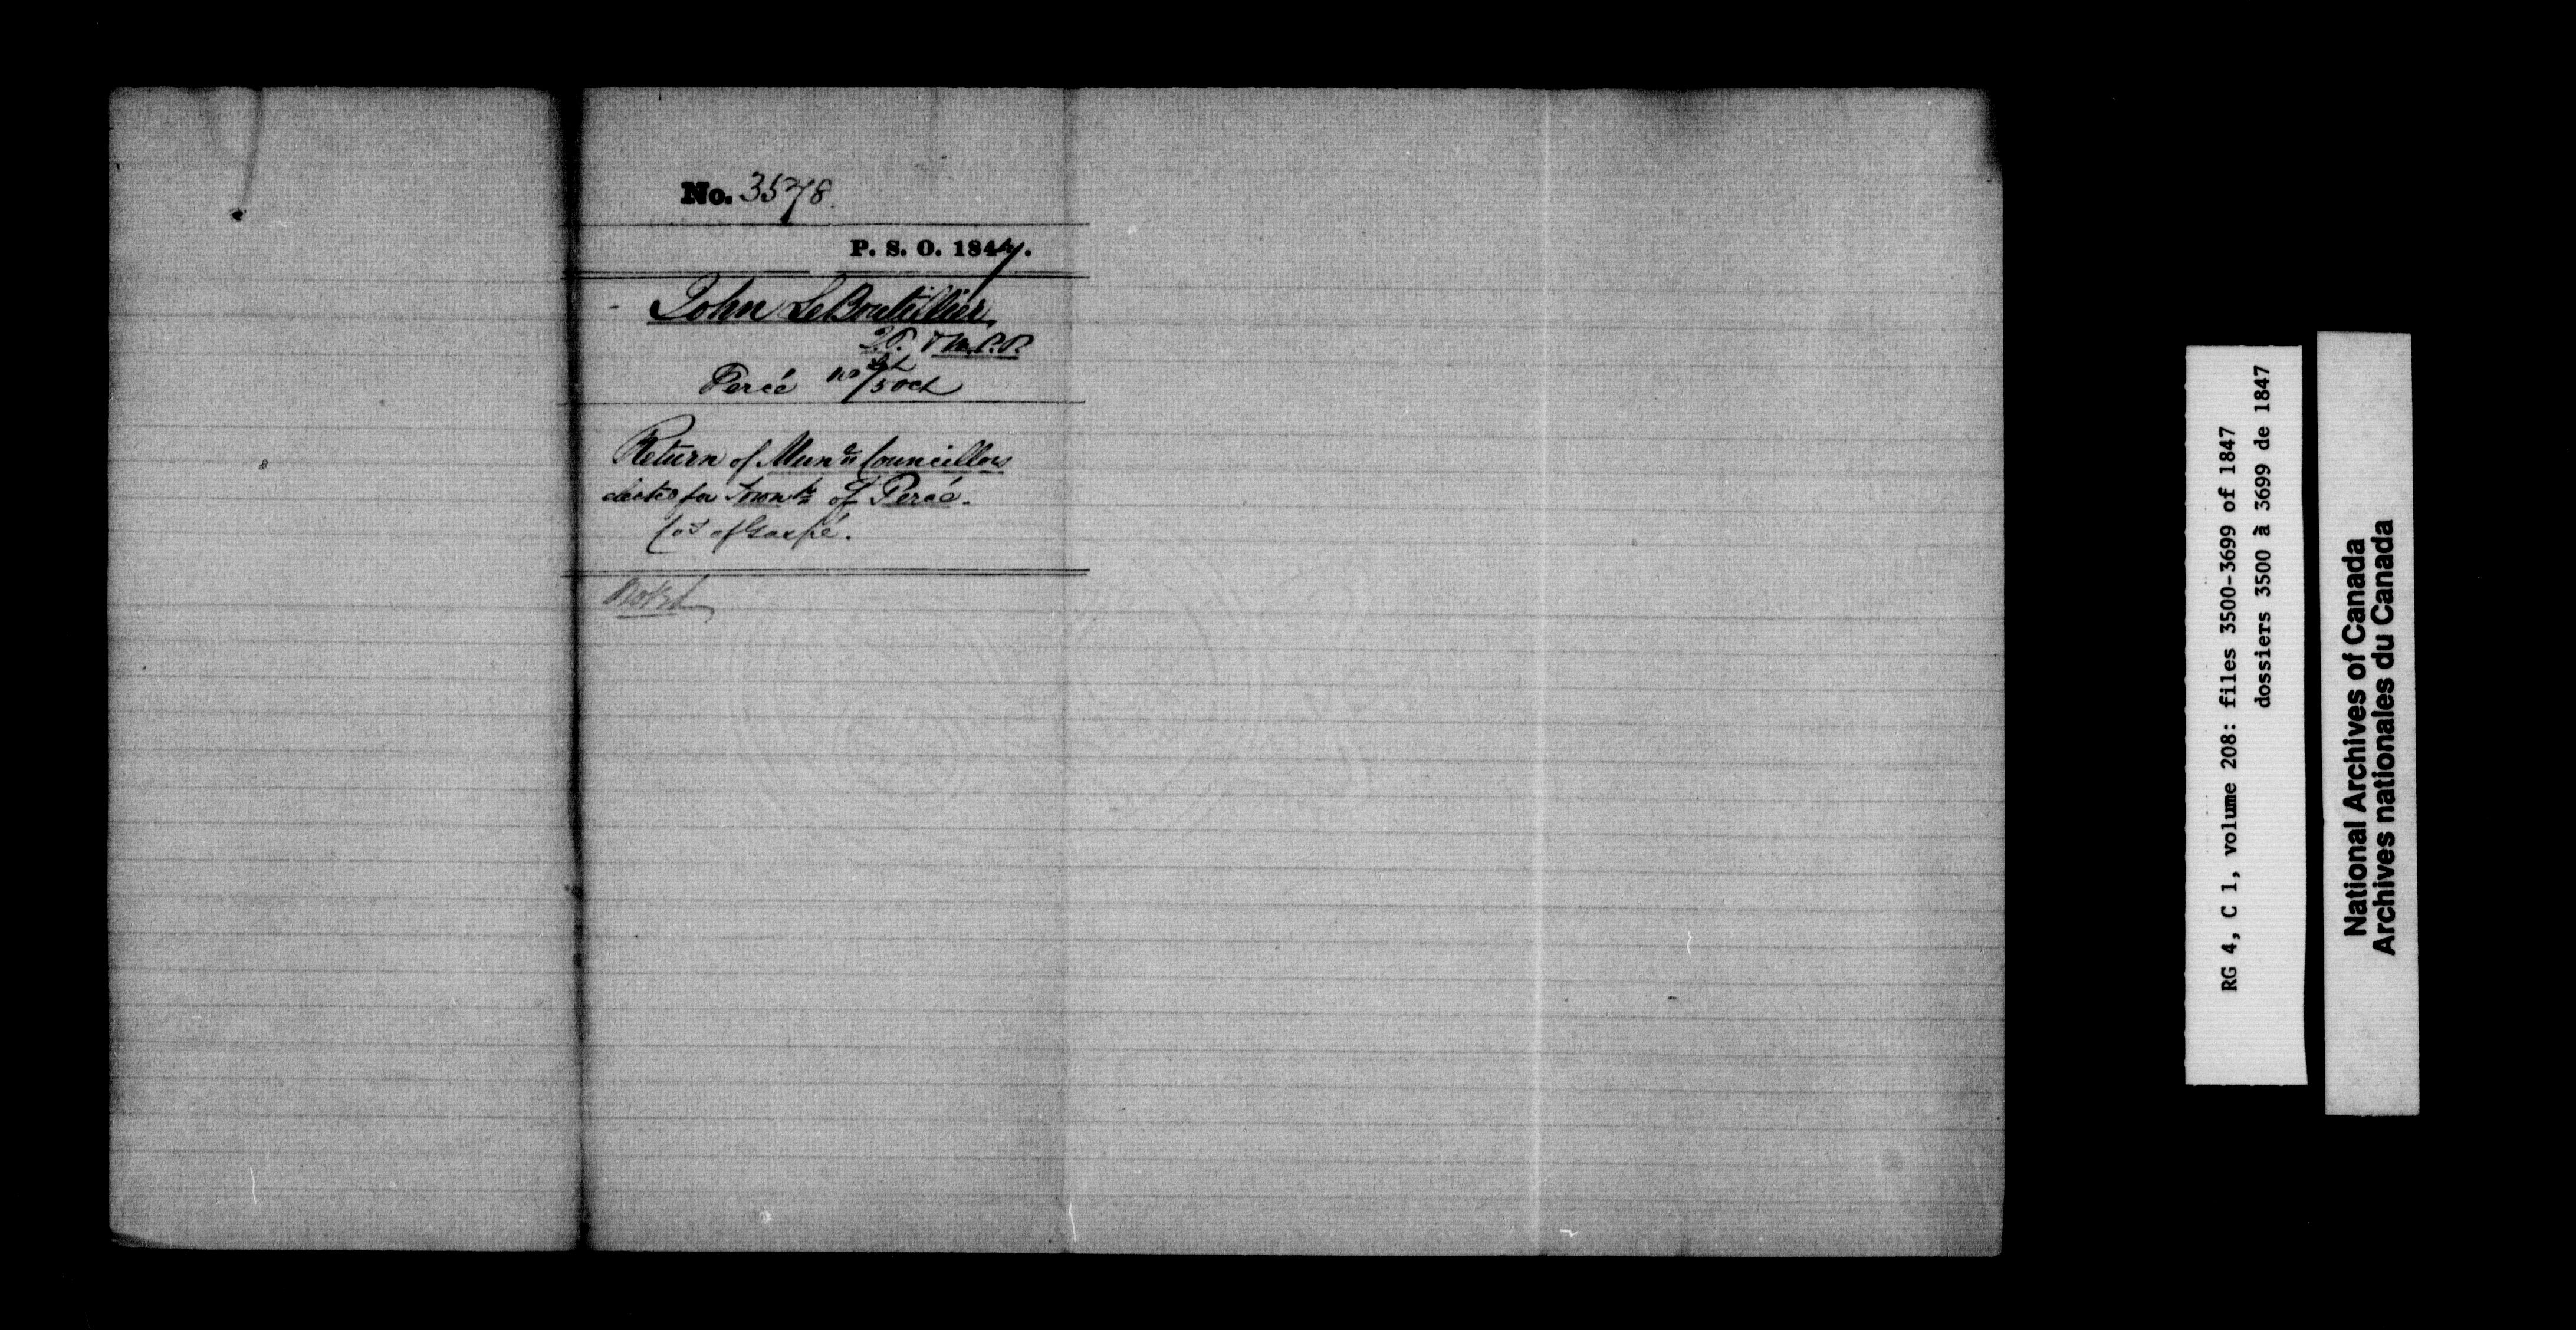 No. 3578.
P. S. O. 1847.
John LeBoutillier,
J.P. & M.P.P.
Percé 5 Oct
Return of Mun Councillors
elected for Town of Percé.
Co. of Gaspé.
Noted
RG 4, C 1, volume 208: files 3500-3699 of 1847
dossiers 3500 à 3699 de 1847
National Archives of Canada
Archives nationales du Canada